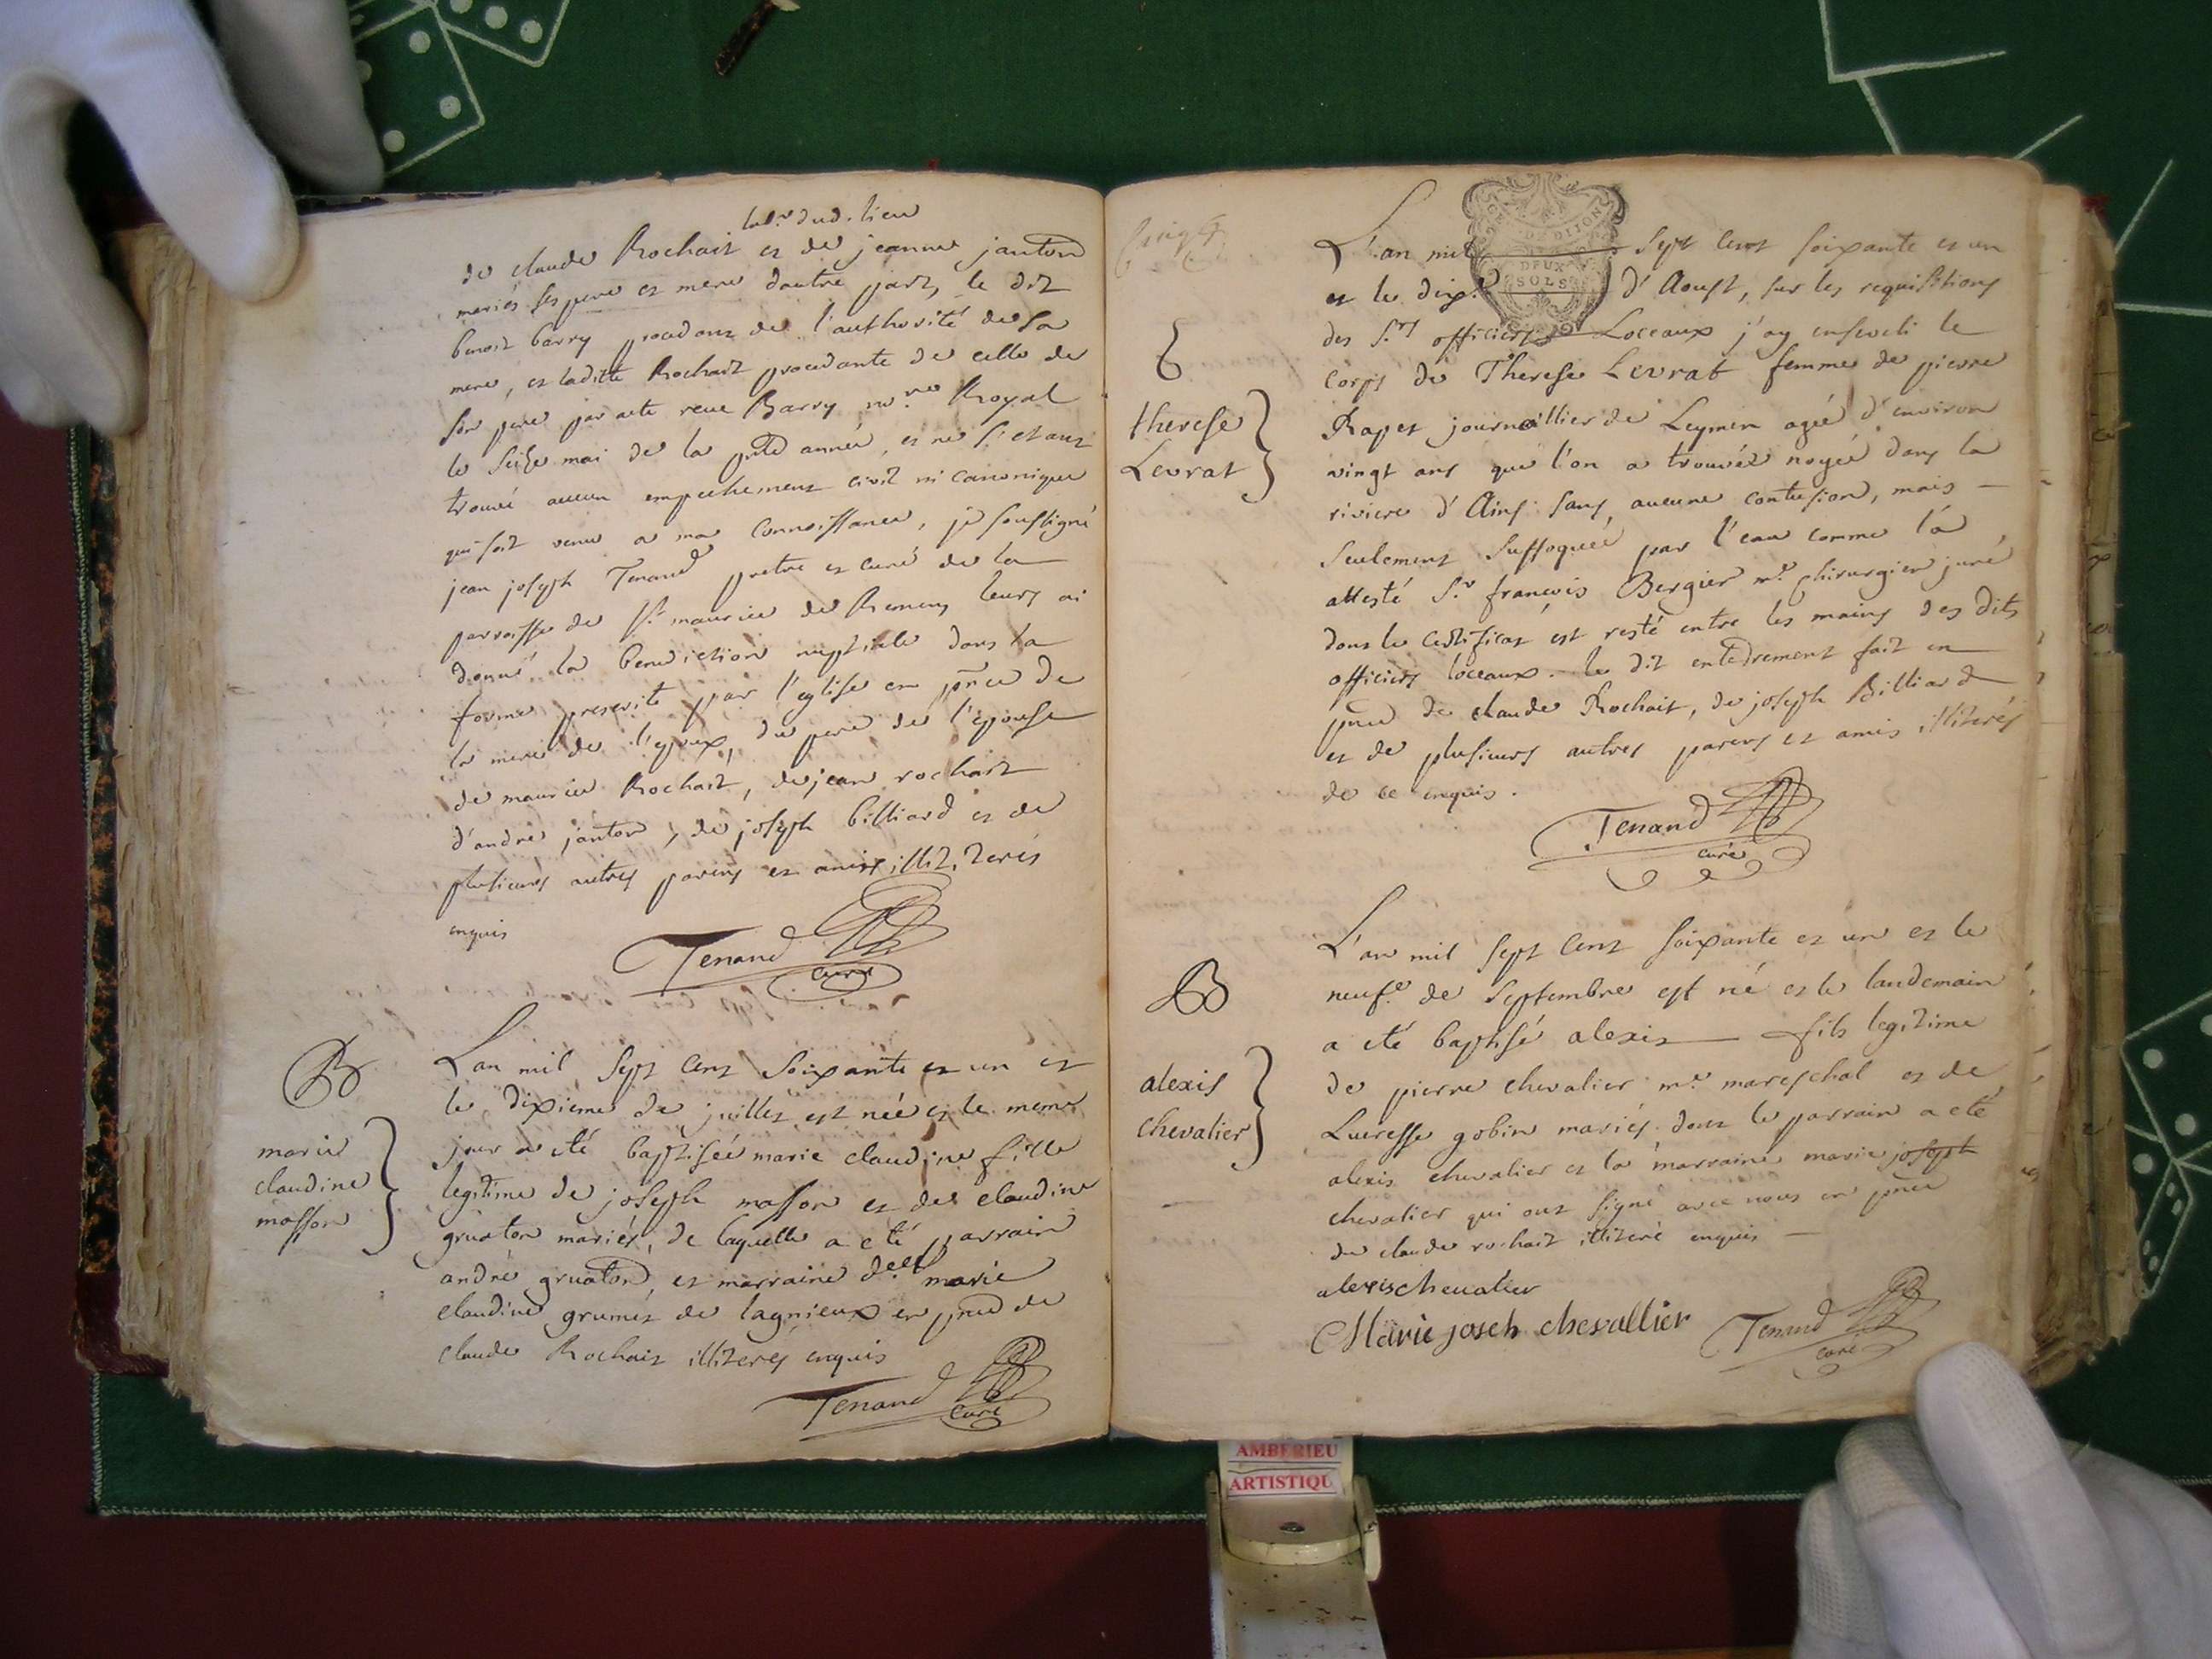 labr dud. lieu
de claude Rochait et de jeanne janton
mariés ses pere et mere dautre part, le dit
benoit barry procedant de l'authorité de sa
mere, et laditte Rochait procedante de celle de
son pere par acte receu Barry nore Royal
le seize mai de la pnte année, et ne s'etant
trouvé aucun empechement civil ni canonique
qui soit venu a ma connoissance, je soussigné
jean joseph Tenand pretre et curé de la
parroisse de st maurice de Remens leurs ai
donné la benediction nuptiale dans la
forme prescrite par l'eglise en pnce de
la mere de l'epoux, du pere de l'epouse
de maurice Rochait, de jean rochait
d'andré janton, de joseph billiard et de
plusieurs autres parens et amis illiterés
enquis
Tenand
curé
B
marie
claudine
masson
L'an mil sept cent soixante et un et
le dixieme de juillet est née et le meme
jour a eté baptisée marie claudine fille
legitime de joseph masson et de claudine
gruaton mariés, de laquelle a eté parrain
andré gruaton, et marraine delle marie
claudine grumet de lagnieux en pnce de
claude Rochait illiterés enquis
Tenand
curé
GE. DE DIJON
DEUX
SOLS
therese
Levrat
L'an mil sept cent soixante et un
et le dix d'Aoust, sur les requisitions
des Srs officiers Loceaux j'ay enseveli le
corps de Therese Levrat femme de pierre
Rapet journallier de Leymen agée d'environ
vingt ans que l'on a trouvée noyée dans la
riviere d'Ains sans aucune contusion, mais
seulement suffoquée par l'eau comme l'a
attesté Sr françois Bergier me chirurgien juré
dont le certificat est resté entre les mains des dits
officiers loceaux. le dit enterrement fait en
pnce de claude Rochait, de joseph Billiard
et de plusieurs autres parens et amis illiterés
de ce enquis.
Tenand
curé
B
alexis
chevalier
L'an mil sept cent soixante et un et le
neufe de septembre est né et le landemain
a eté baptisé alexis fils legitime
de pierre chevalier me mareschal et de
Lucresse gobin mariés dont le parrain a eté
alexis chevalier et la marraine marie joseph
chevalier qui ont signé avec nous en pnce
de claude rochait illiteré enquis
alexis chevalier
Marie joseh chevallier
Tenand
curé
AMBERIEU
ARTISTIQU